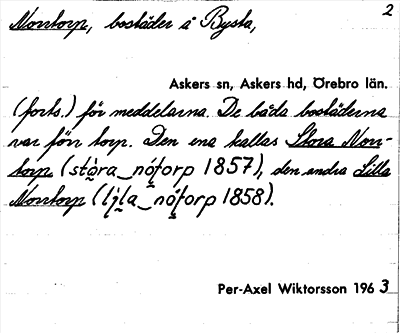 2
Norrtorp, bostäder å Bysta,
Askers sn, Askers hd, Örebro län.
(forts.) för meddelarna. De båda bostäderna
var förr torp. Den ena kallas Stora Norr-
torp (stòra_nótorp 1857), den andra Lilla
Norrtorp (lìla_nótorp 1858).
Per-Axel Wiktorsson 1963